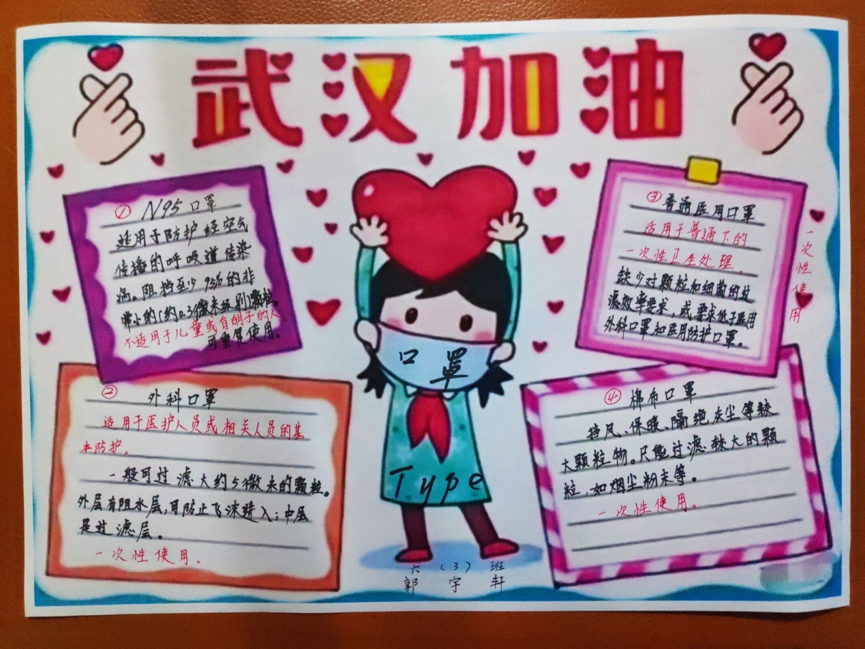 武汉加油
① N95口罩
适用于防护经空气
传播的呼吸道传染
病。阻挡至少95%的非
常小的(约0.3微米级别)颗粒
不适用于儿童或有胡子的人
可重复使用。
② 外科口罩
适用于医护人员或相关人员的基
本防护。
一般可过滤大约5微米的颗粒。
外层有阻水层,可防止飞沫进入;中层
是过滤层。
一次性使用。
口罩
Type
六(3)班
郭宇轩
③ 普通医用口罩
适用于普通下的
一次性卫生处理。
缺少对颗粒和细菌的过
滤效率要求,或要求低于医用
外科口罩和医用防护口罩。
一次性使用
④ 棉布口罩
挡风、保暖、隔绝灰尘等较
大颗粒物。只能过滤较大的颗
粒,如烟尘粉末等。
一次性使用。